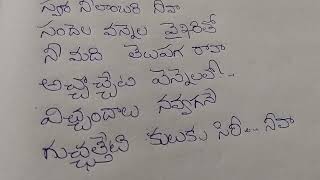 స్వర నీలాంబరి నీవా
సందెల వన్నెల వైఖరితో
నీ మది తెలుపగ రావా
అచ్చొచ్చేటి వెన్నెలలో...
విచ్చందాలు నవ్వగనే
గుచ్చెత్తేటి కులుకు సిరీ... నీవా